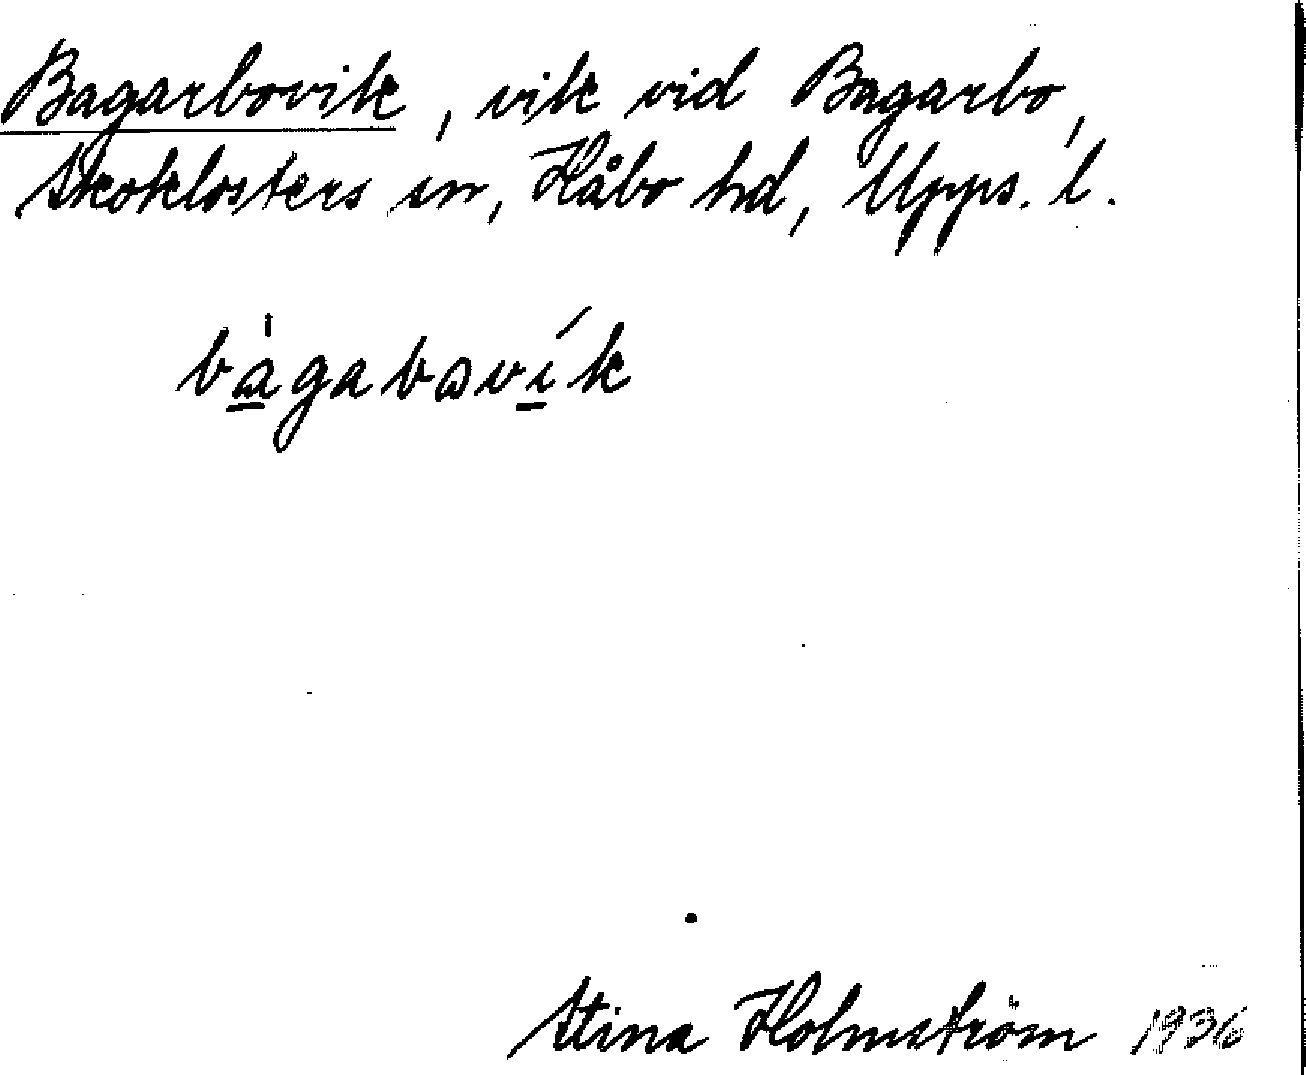 Bagarbovik, vik vid Bagarbo,
Skoklosters sn, Håbo hd, Upps. l.
bàgabωvík
Stina Holmström 1936